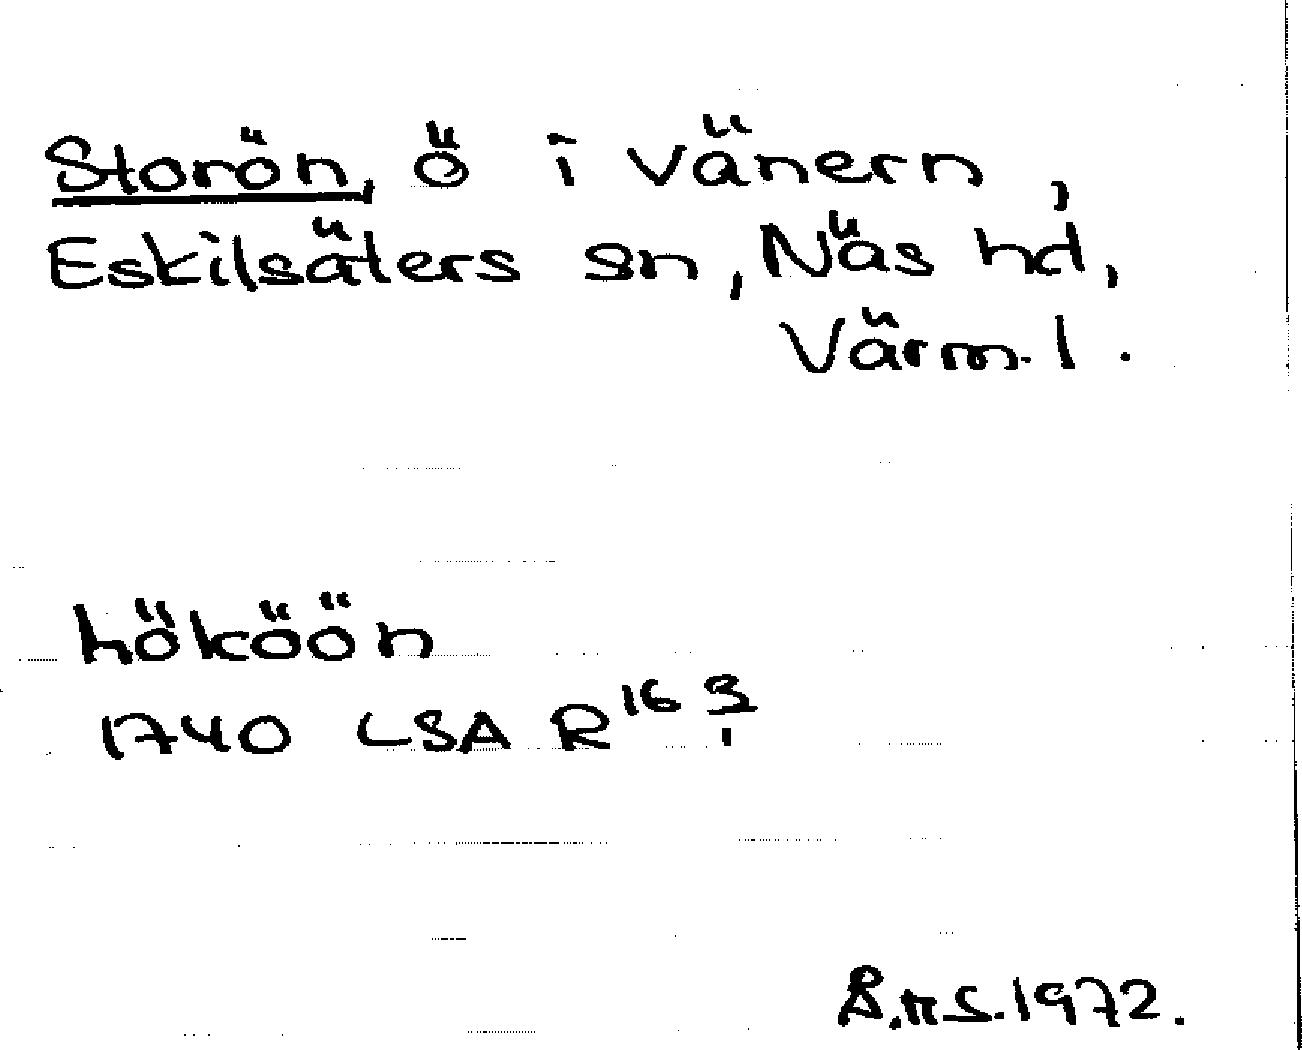 Storön, ö i Vänern,
Eskilsäters sn, Näs hd,
Värml.
hököön
1740 LSA R 16 3/1
Å.H.S. 1972.